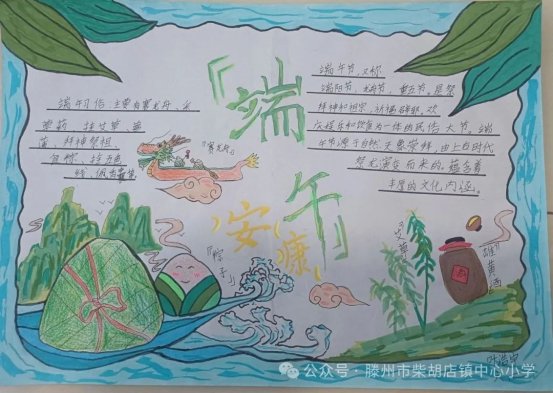 『端午』
安康
端午习俗主要有赛龙舟、采
草药、挂艾草、菖
蒲、拜神祭祖、
包粽、拴五色
线、佩香囊等
『赛龙舟』
端午节，又称
端阳节、龙舟节、重五节，是祭
拜神和祖宗、祈福辟邪、欢
庆娱乐和饮食为一体的民俗大节。端
午节源于自然天象崇拜，由上古时代
祭龙演变而来的。蕴含着
丰厚的文化内涵。
『粽子』
『艾草』
『雄黄酒』
酒
公众号·滕州市柴胡店镇中心小学